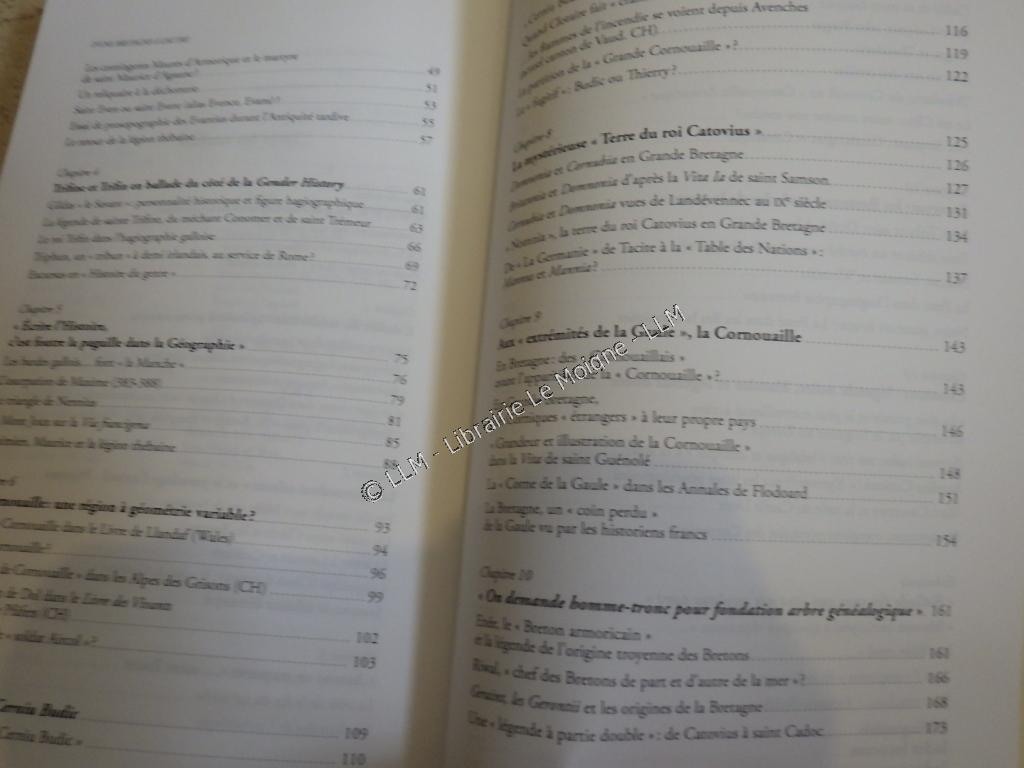 D'UNE BRETAGNE À L'AUTRE
Les contingents Maures d'Armorique et le martyre
de saint Maurice d'Agaune? 49
Un reliquaire à la déchetterie 51
Saint Evere ou saint Event (alias Evence, Evans)? 53
Essai de prosopographie des Evantius durant l'Antiquité tardive 55
Le retour de la légion thébaine 57
Chapitre 4
Trifine et Trifin en ballade du côté de la Gender History 61
Gildas « le Savant » : personnalité historique et figure hagiographique 61
La légende de sainte Trifine, du méchant Conomor et de saint Trémeur 63
Le roi Trifin dans l'hagiographie galloise 66
Triphun, un « tribun » à demi irlandais, au service de Rome? 69
Excursus en « Histoire du genre » 72
Chapitre 5
« Écrire l'Histoire,
c'est foutre la pagaille dans la Géographie » 75
Les bardes gallois... font « la Manche » 76
L'usurpation de Maxime (383-388) 79
triangle de Nennius 81
Mont Joux sur la Via francigena 85
Maxime et la légion thébaine 88
6
Cornouaille: une région à géométrie variable? 93
Cornouaille dans le Livre de Llandaf (Wales) 94
Cornouaille? 96
de Cornouaille » dans les Alpes des Grisons (CH) 99
de Dol dans le Livre des Vivants
Pfäfers (CH) 102
« soldat Airval »? 103
Cerniu Budic 109
Cerniu Budic » 110
Quand Clotaire fait
les flammes de l'incendie se voient depuis Avenches
canton de Vaud, CH) 116
partition de la « Grande Cornouaille »? 119
Le « fugitif » : Budic ou Thierry? 122
Chapitre 8
La mystérieuse « Terre du roi Catovius » 125
Domnonia et Cornubia en Grande Bretagne 126
Britannia et Domnonia d'après la Vita Ia de saint Samson 127
Cornubia et Domnonia vues de Landévennec au IXe siècle 131
« Nomnia », la terre du roi Catovius en Grande Bretagne 134
De « La Germanie » de Tacite à la « Table des Nations » :
Mannus et Mannia? 137
Chapitre 9
Aux « extrémités de la Gaule », la Cornouaille 143
En Bretagne: des « Cornouaillais »
avant l'apparition de la « Cornouaille »? 143
En Bretagne,
« étrangers » à leur propre pays 146
« Grandeur et illustration de la Cornouaille »
dans la Vita de saint Guénolé 148
La « Corne de la Gaule » dans les Annales de Flodoard 151
La Bretagne, un « coin perdu »
de la Gaule vu par les historiens francs 154
Chapitre 10
« On demande homme-tronc pour fondation arbre généalogique » 161
Enée, le « Breton armoricain »
et la légende de l'origine troyenne des Bretons 161
Riwal, « chef des Bretons de part et d'autre de la mer »? 166
Geraint, les Gerontii et les origines de la Bretagne 168
Une « légende à partie double » : de Catovius à saint Cadoc 173
© LLM - Librairie Le Moigne - LLM